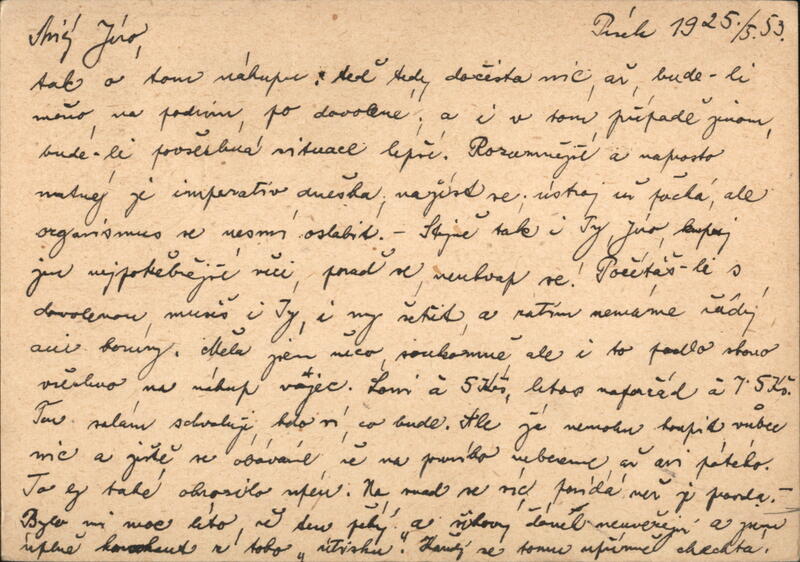 Milý Jíro, Písek 1925./5.53.
tak o tom nákupu: teď tedy dočista nic, až, bude-li
na podzim, po dovolené; a i v tom případě jenom,
bude-li povšechná situace lepší. Rozumnější a naprosto
nutný je imperativ dneška, najíst se; ústroj už počká, ale
organismus se nesmí oslabit. – Stejně tak i Ty, Jíro, kupuj
jen nejpotřebnější věci, poraď se, neukvap se! Počítáš-li s
dovolenou, musíš i Ty, i my šetřit, a zatím nemáme žádný
ani koruny. Měla jsem něco, soukromně ale i to padlo skoro
všechno na nákup vajec. Loni à 5 Kčs, letos napořád à 7·5 Kčs.
Ten salám schvaluji, kdo ví, co bude. Ale já nemohu koupit vůbec
nic a ještě se obávám, že na prvního nebereme, až asi pátého.
To by také ohrozilo
Na snad se víc povídá než je pravda. –
Bylo mi moc líto, že ten pěkný a neuvěřejní a jsem
úplně z toho „útisku“. Každý se tomu upřímně chechtá.